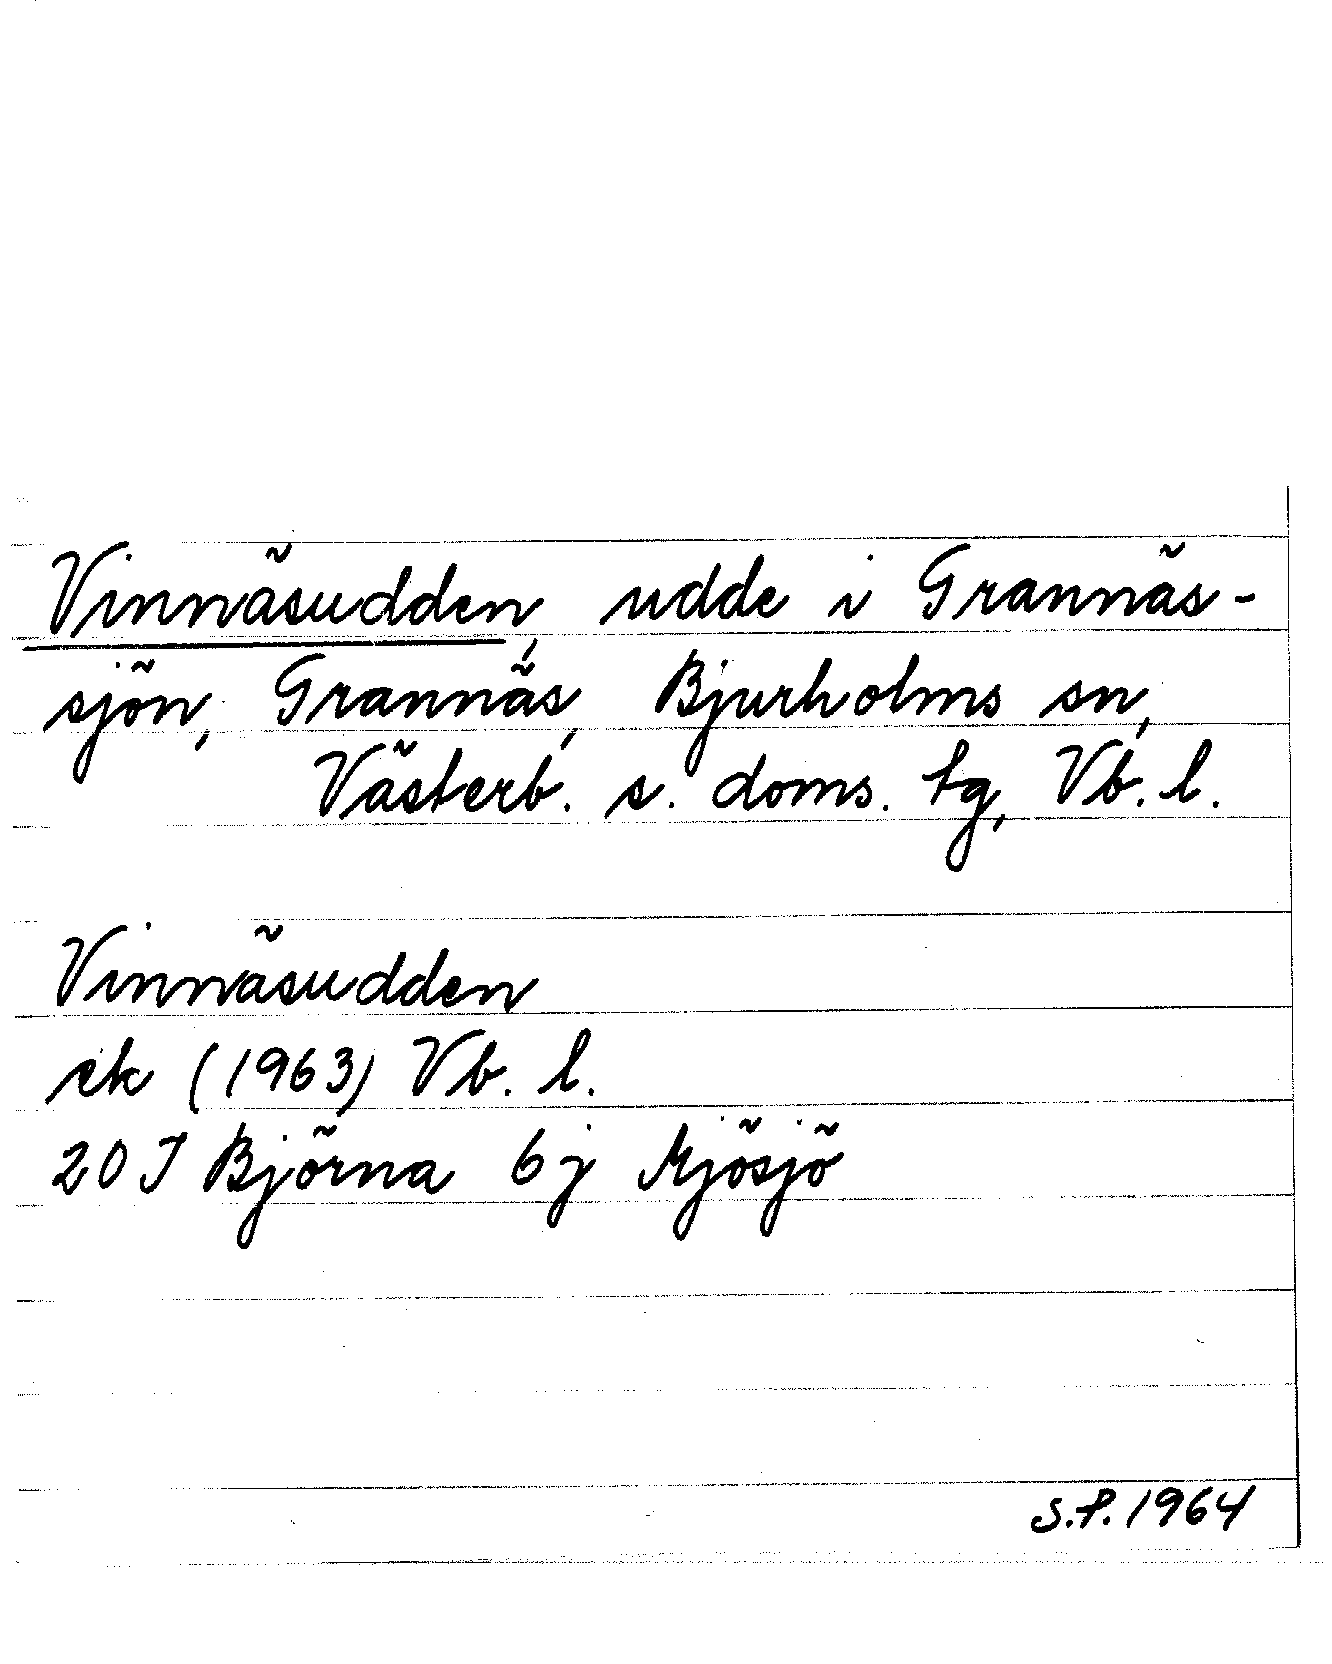 Vinnäsudden, udde i Grannäs-
sjön, Grannäs, Bjurholms sn,
Västerb. s. doms. tg, Vb. l.
Vinnäsudden
ek (1963) Vb. l.
20 J Björna 6j Mjösjö
S.P. 1964